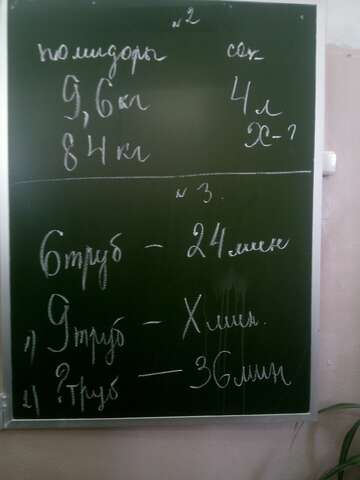 №2
помидоры сок
9,6 кг 4 л
84 кг X-?
№3.
6 труб – 24 мин
1) 9 труб – X мин.
2) ? труб – 36 мин